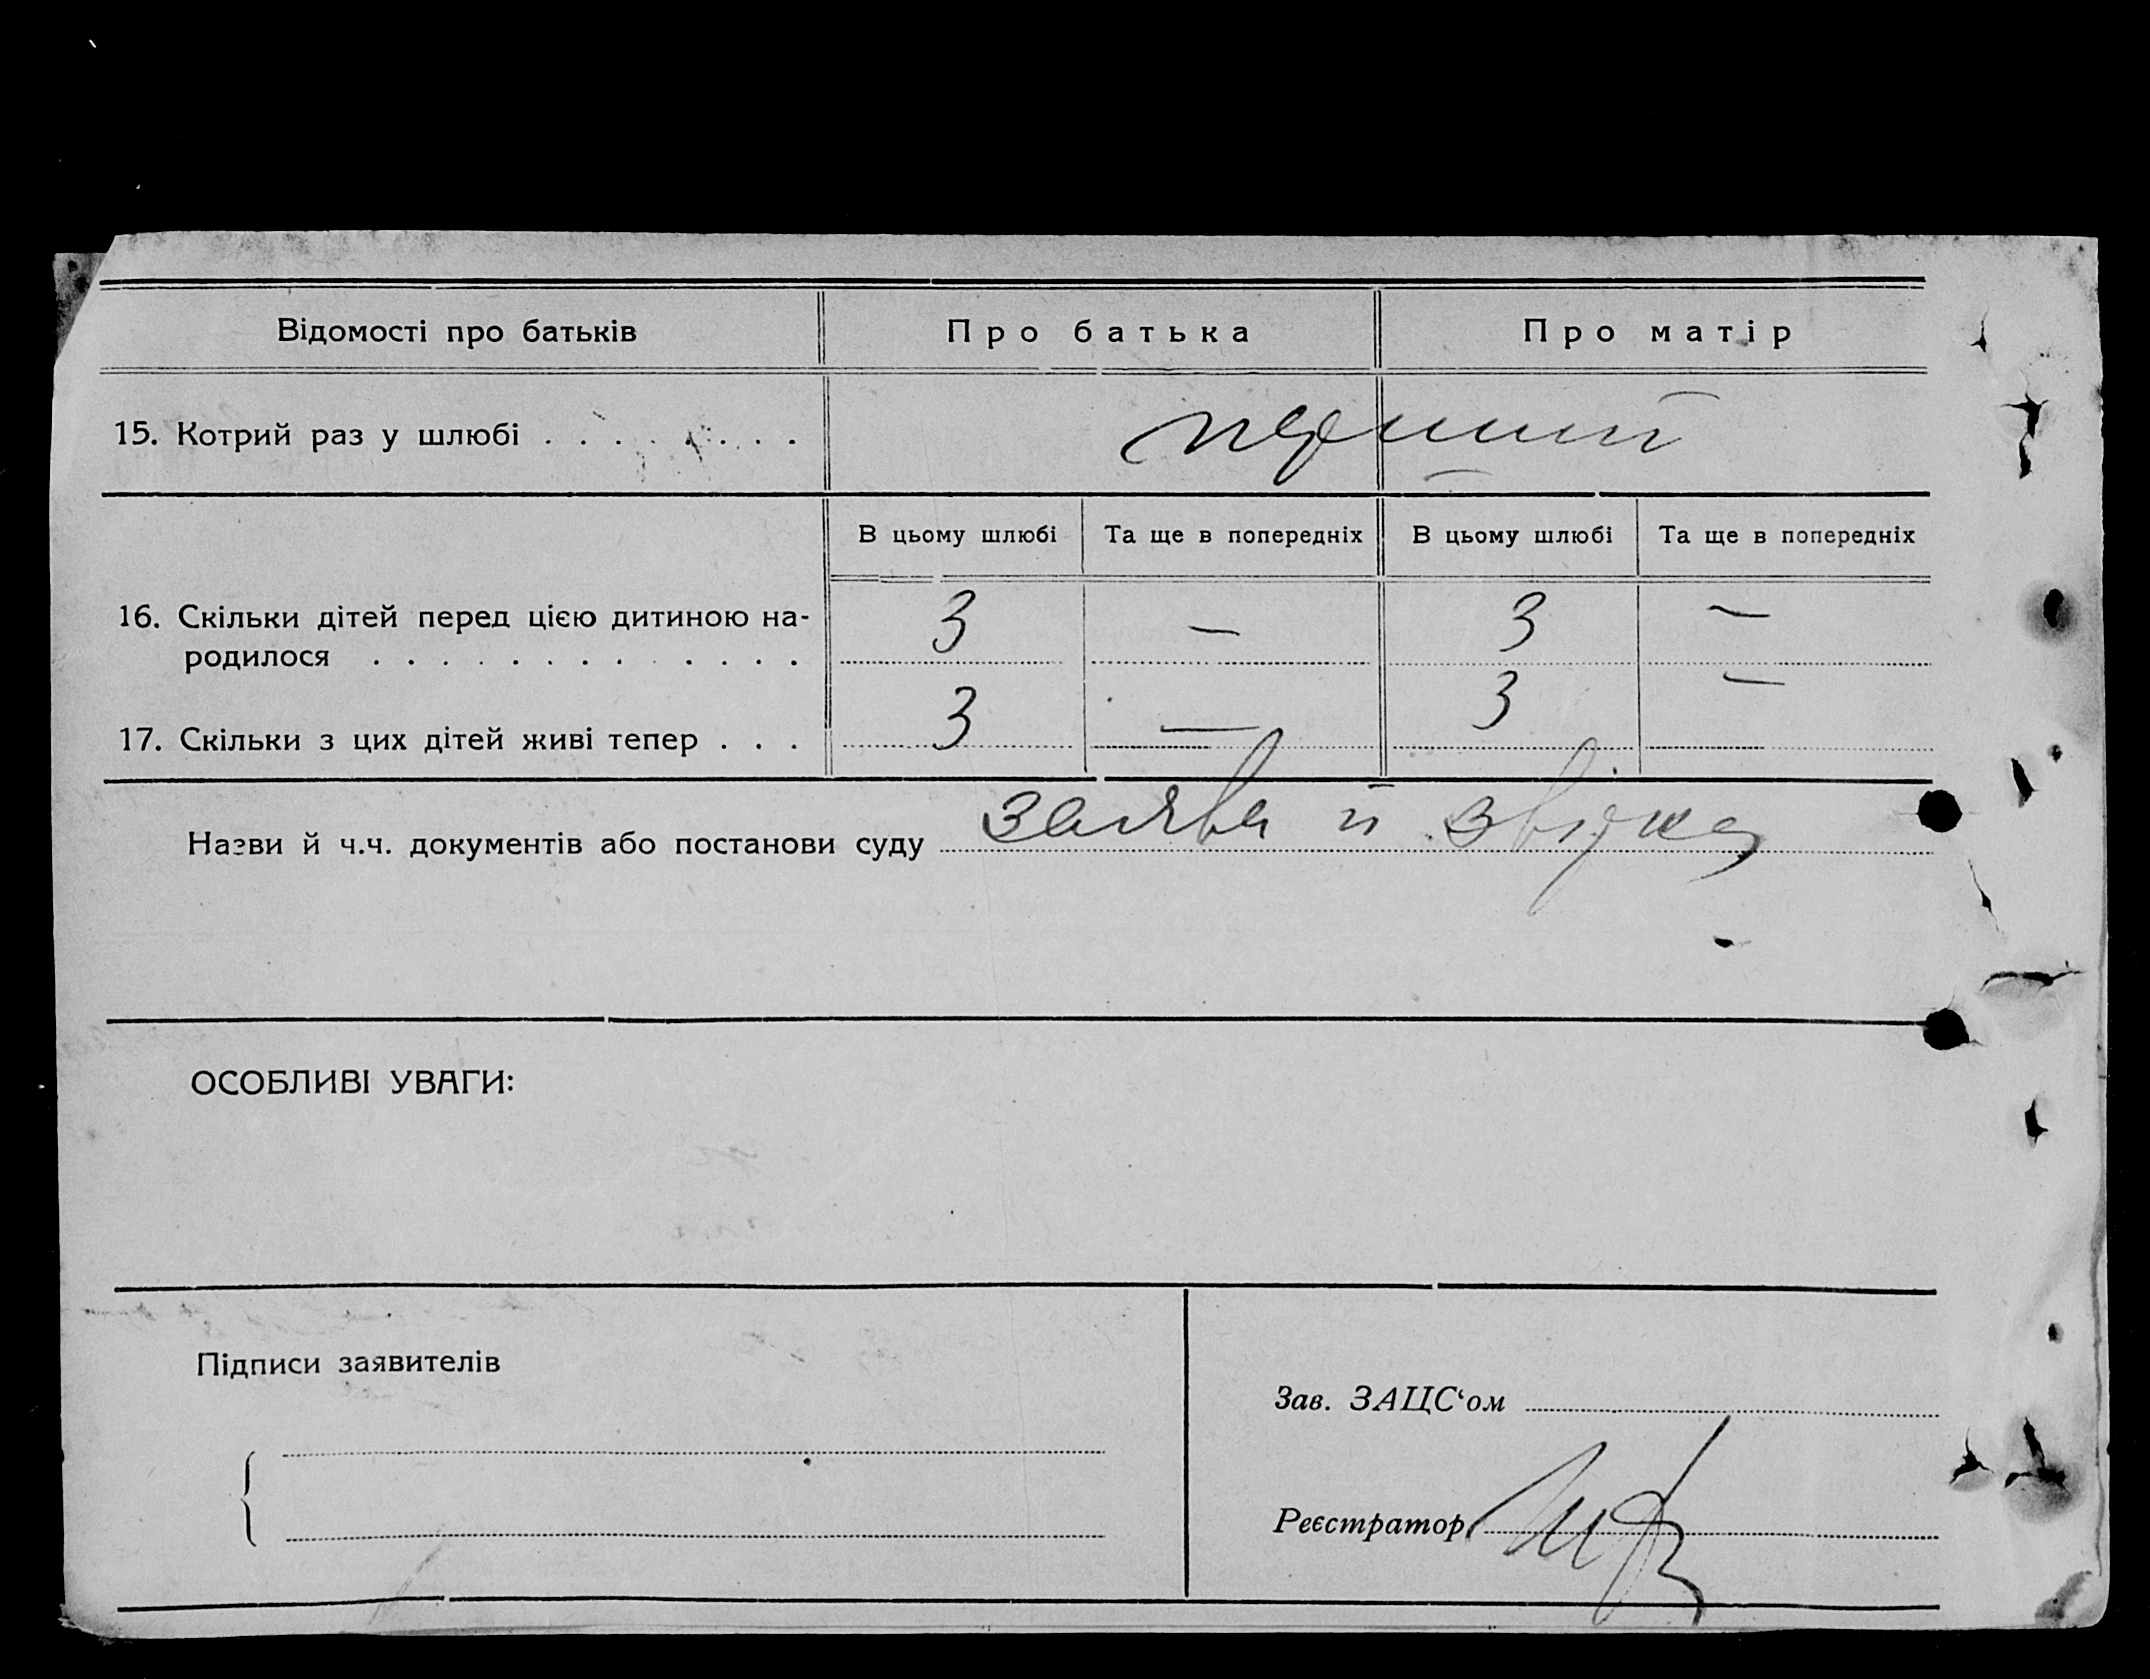 Відомості про батьків Про батька Про матір
15. Котрий раз у шлюбі . . . . . . . . перший
В цьому шлюбі Та ще в попередніх В цьому шлюбі Та ще в попередніх
16. Скільки дітей перед цією дитиною на-
родилося . . . . . . . . . . . . . 3 — 3 —
17. Скільки з цих дітей живі тепер . . . 3 — 3 —
Назви й ч.ч. документів або постанови суду заява й звідка
ОСОБЛИВІ УВАГИ:
Підписи заявителів
Зав. ЗАЦС‘ом
Реєстратор